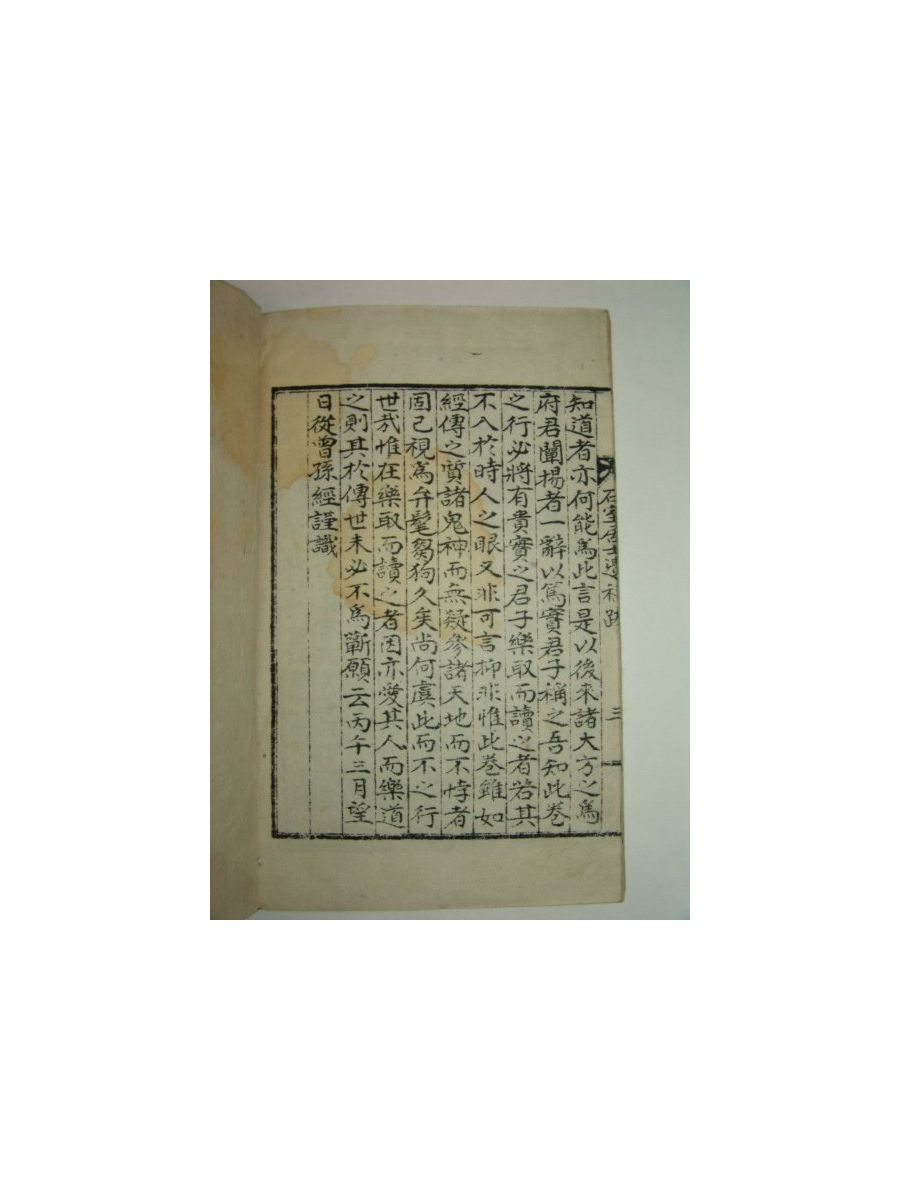 石室居士遺稿跋
三
知道者亦何能爲此言是以後來諸大方之爲
府君闡揚者一辭以篤實君子稱之吾知此卷
之行必將有貴實之君子樂取而讀之者若其
不入於時人之眼又非可言抑非惟此卷雖如
經傳之質諸鬼神而無疑參諸天地而不悖者
固已視爲弁髦芻狗久矣尚何虞此而不之行
世哉惟在樂取而讀之者因亦愛其人而樂道
之則其於傳世未必不爲蘄願云丙午三月望
日從曾孫經謹識